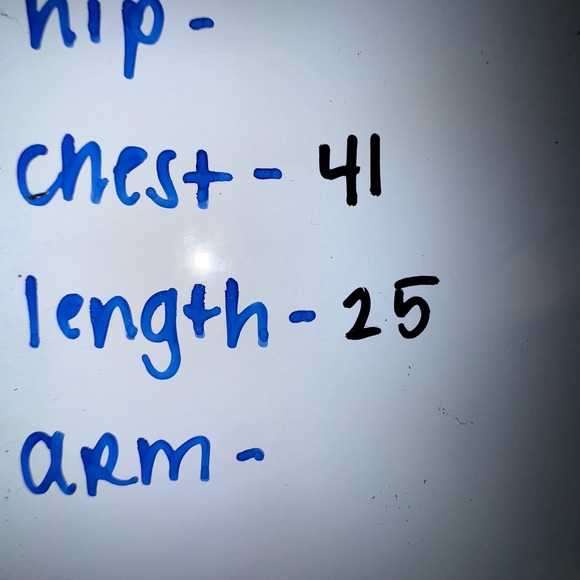 hip -
chest - 41
length - 25
arm -